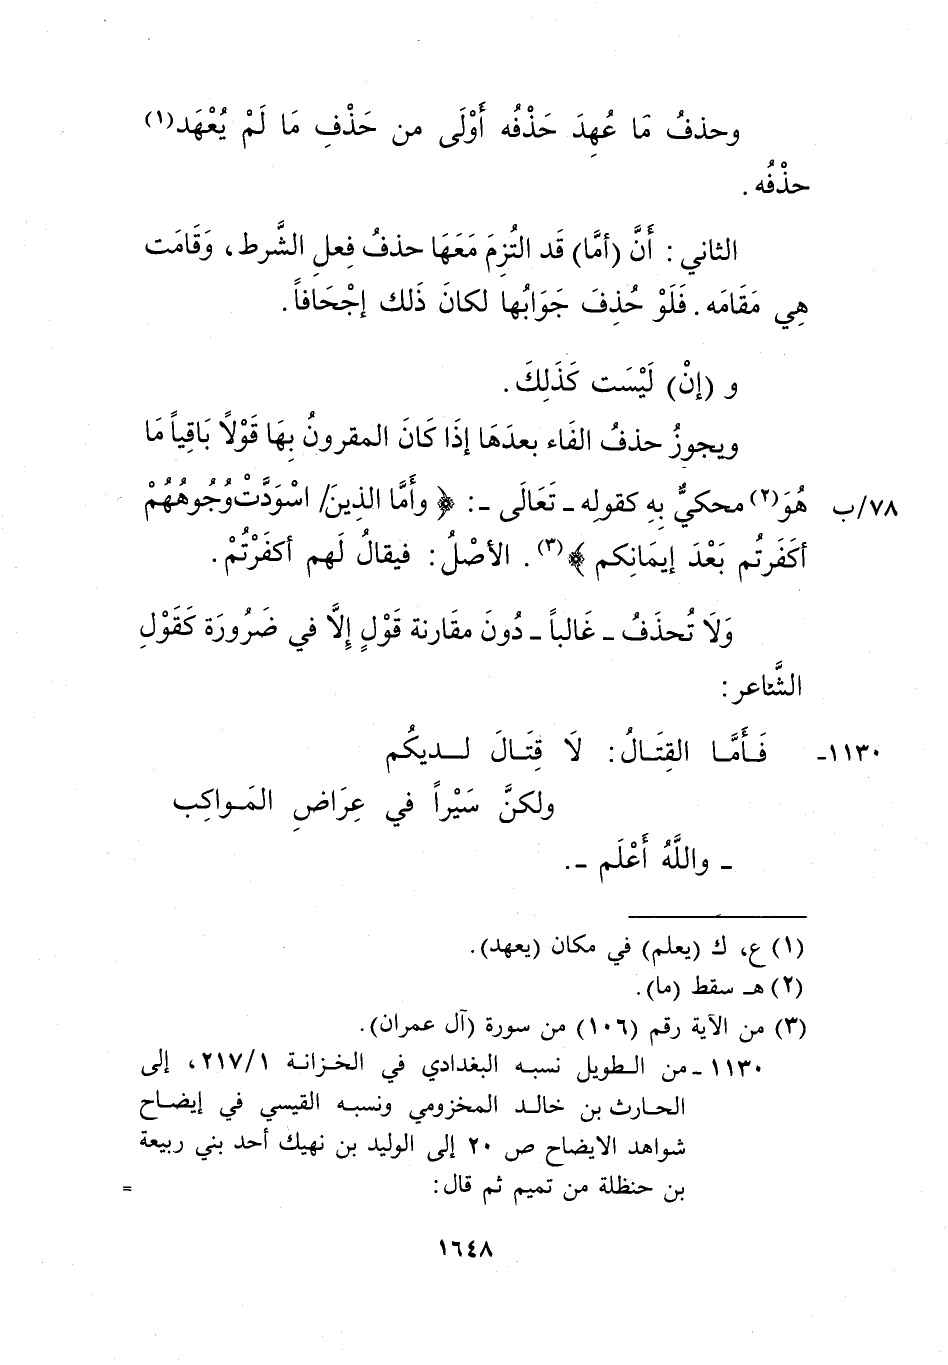 وحذفُ مَا عُهِدَ حَذْفُه أَوْلَى من حَذْفِ مَا لَمْ يُعْهَد(١)
حذْفُه .
الثاني : أَنَّ (أمَّا) قَد التُزِمَ مَعَهَا حذفُ فِعلِ الشَّرط ، وَقَامَت
هِي مَقَامَه . فَلَوْ حُذِفَ جَوَابُها لكانَ ذَلك إجْحَافاً .
و (إنْ) لَيْسَت كَذَلِكَ .
ويجوزُ حذفُ الفَاء بعدَهَا إذَا كَانَ المقرونُ بِهَا قَوْلاً بَاقِياً مَا
٧٨/ب هُوَ(٢) محكيٌّ بِهِ كقولِه ـ تَعَالَى ـ : ﴿ وأَمَّا الذِينَ/ اسْوَدَّتْ وُجُوهُهُمْ
أكَفَرتُم بَعْدَ إيمَانِكم ﴾(٣) . الأصْلُ : فيقالُ لَهم أكفَرْتُمْ .
وَلَا تُحذَفُ ـ غَالباً ـ دُونَ مقَارنة قَوْلٍ إلَّا في ضَرُورَة كَقَوْلِ
الشَّاعر :
١١٣٠ـ فَـأَمَّـا القِتَـالُ : لَا قِتَـالَ لـديكُم
ولكنَّ سَيْراً في عِرَاضِ المَـواكِب
ـ واللَّهُ أَعْلَم ـ .
(١) ع، ك (يعلم) في مكان (يعهد) .
(٢) هـ سقط (ما) .
(٣) من الآية رقم (١٠٦) من سورة (آل عمران) .
١١٣٠ ـ من الطويل نسبه البغدادي في الخزانة ٢١٧/١ ، إلى
الحارث بن خالد المخزومي ونسبه القيسي في إيضاح
شواهد الايضاح ص ٢٠ إلى الوليد بن نهيك أحد بني ربيعة
بن حنظلة من تميم ثم قال : =
١٦٤٨